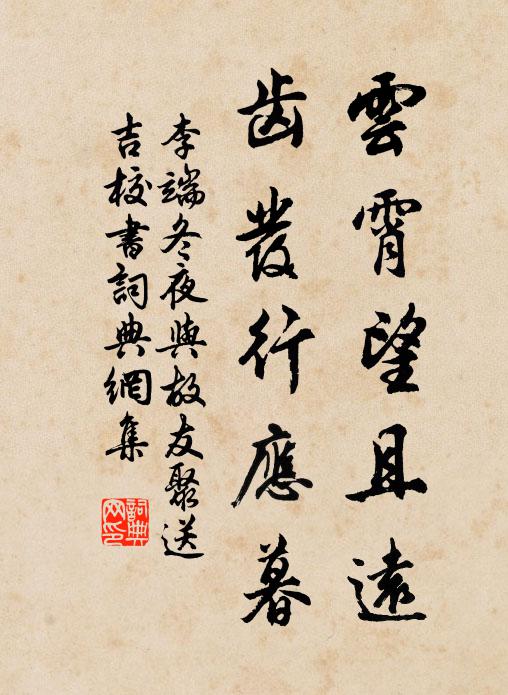 雲霄望且遠
齒發行應暮
李端冬夜與故友聚送
吉校書詞典網集
詞典
网印